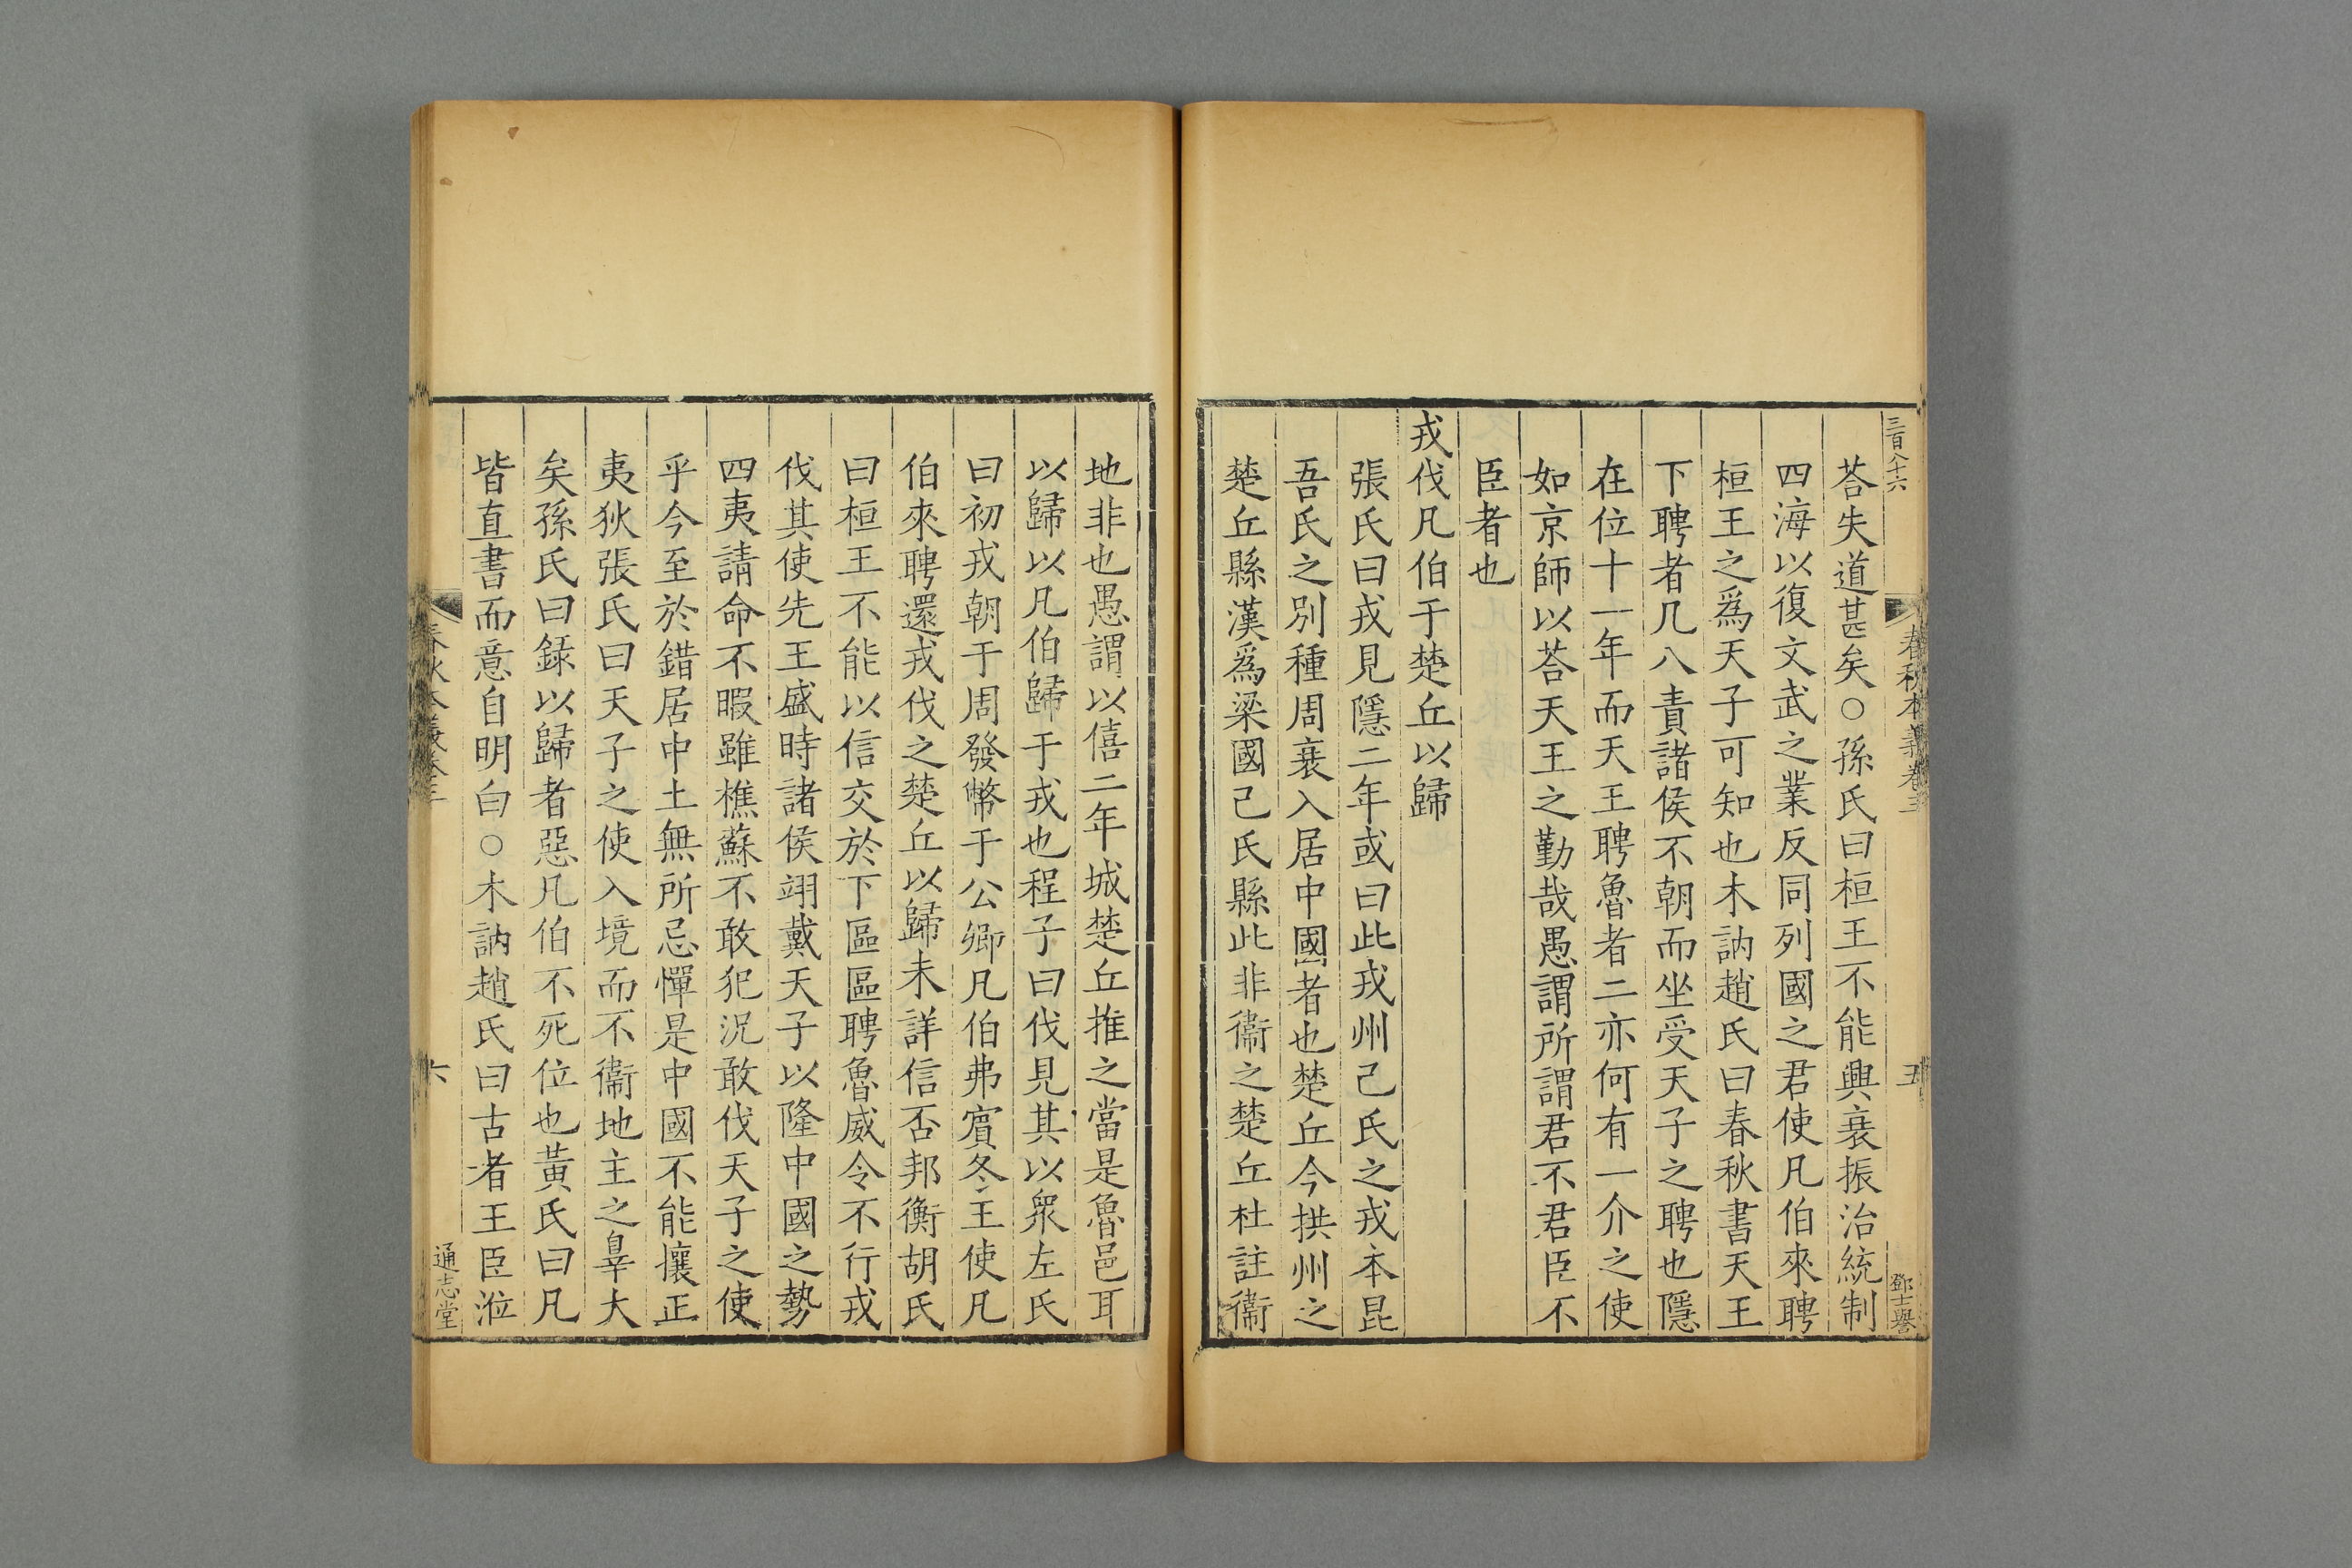 三百八十六
春秋本義卷三
五
鄧士譽
荅失道甚矣○孫氏曰桓王不能興衰振治統制
四海以復文武之業反同列國之君使凡伯來聘
桓王之爲天子可知也木訥趙氏曰春秋書天王
下聘者凡八責諸侯不朝而坐受天子之聘也隱
在位十一年而天王聘魯者二亦何有一介之使
如京師以荅天王之勤哉愚謂所謂君不君臣不
臣者也
戎伐凡伯于楚丘以歸
張氏曰戎見隱二年或曰此戎州己氏之戎本昆
吾氏之別種周衰入居中國者也楚丘今拱州之
楚丘縣漢爲梁國己氏縣此非衞之楚丘杜註衞
地非也愚謂以僖二年城楚丘推之當是魯邑耳
以歸以凡伯歸于戎也程子曰伐見其以衆左氏
曰初戎朝于周發幣于公卿凡伯弗賓冬王使凡
伯來聘還戎伐之楚丘以歸未詳信否邦衡胡氏
曰桓王不能以信交於下區區聘魯威令不行戎
伐其使先王盛時諸侯翊戴天子以隆中國之勢
四夷請命不暇雖樵蘇不敢犯況敢伐天子之使
乎今至於錯居中土無所忌憚是中國不能攘正
夷狄張氏曰天子之使入境而不衞地主之辠大
矣孫氏曰錄以歸者惡凡伯不死位也黃氏曰凡
皆直書而意自明白○木訥趙氏曰古者王臣涖
春秋本義卷三
六
通志堂